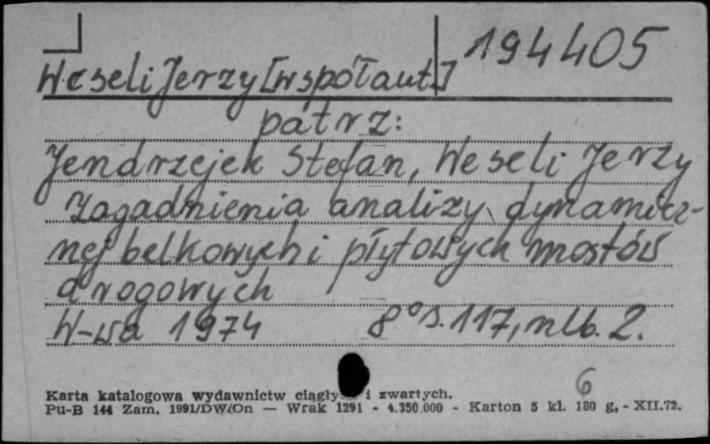 194405
Weseli Jerzy [współaut.]
patrz:
Jendrzejek Stefan, Weseli Jerzy
Zagadnienia analizy dynamicz-
nej belkowych i płytowych mostów
drogowych
W-wa 1974 8° s. 117, nlb. 2.
6
Karta katalogowa wydawnictw ciągły i zwartych.
Pu-B 144 Zam. 1991/DW/On — Wrak 1291 - 4.350.000 - Karton 5 kl. 180 g. - XII.72.